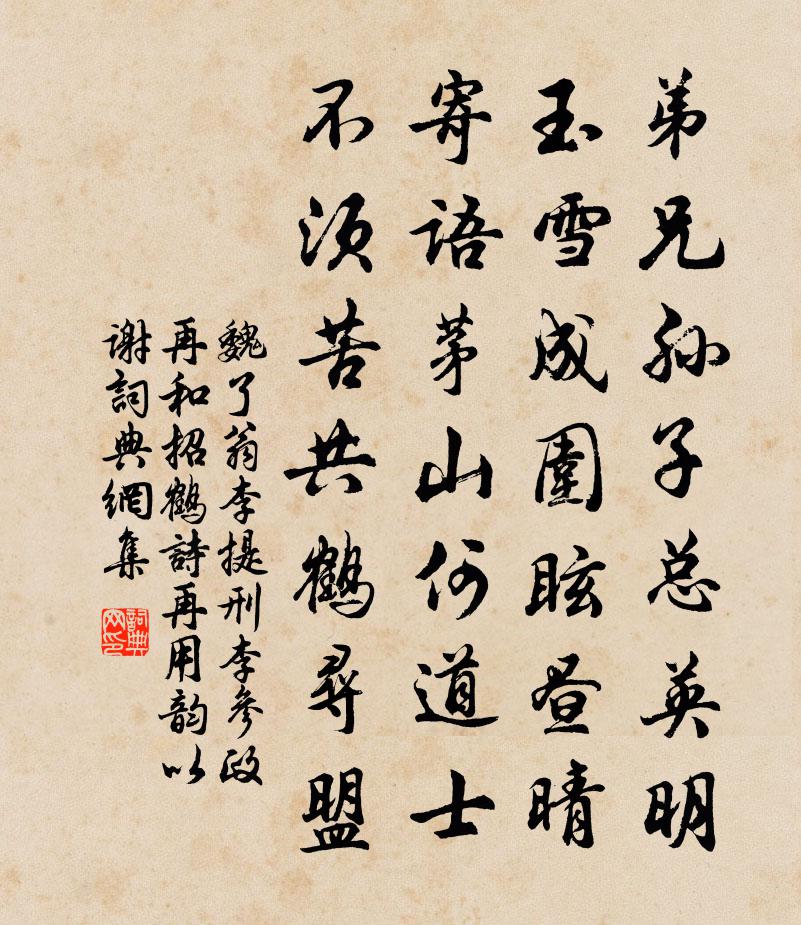 弟兄孙子总英明
玉雪成圍眩昼晴
寄語茅山何道士
不須苦共鶴尋盟
魏了翁李提刑李參政
再和招鶴詩再用韵以
谢詞典網集
詞典
网印